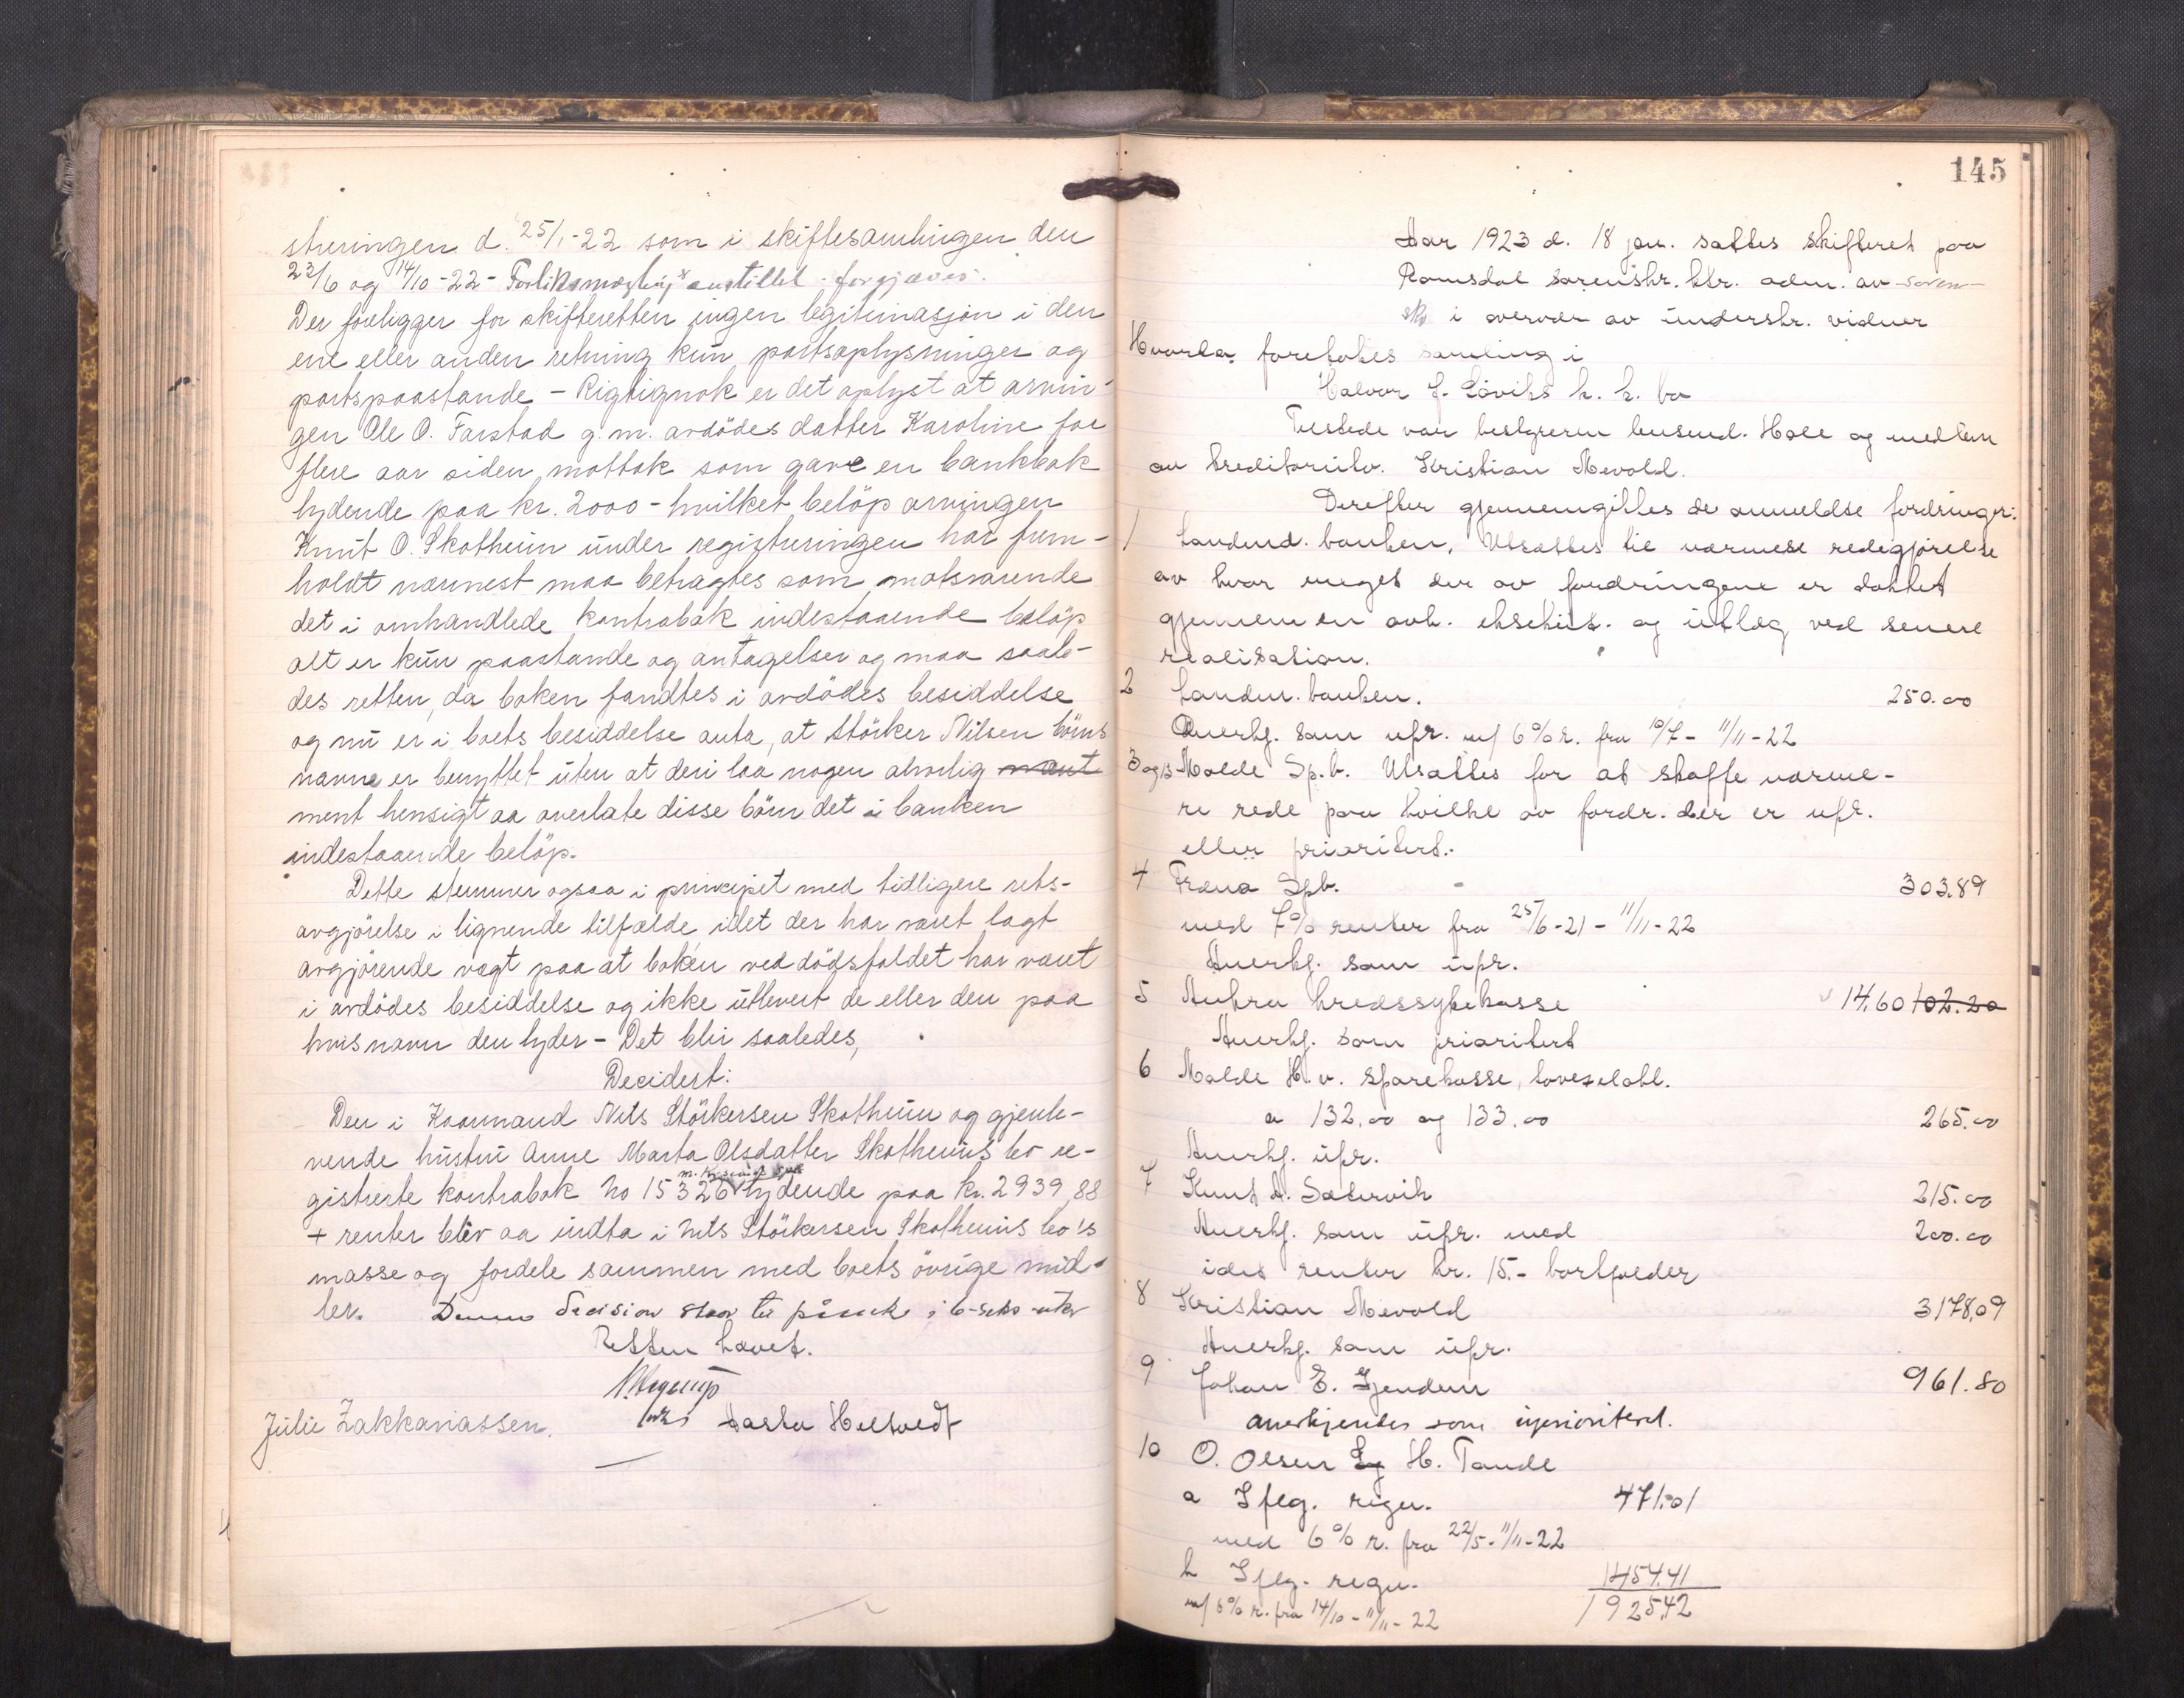 streringen d. 25/1-22 som i skiftesamlingen den
23/6 og 14/10-22 - Forliksmægling er anstillet forgjæves.
Der foreligger for skifteretten ingen legitimasjon i den
ene eller anden retning kun partsoplysninger og
partspaastande - Rigtignok er det oplyst at arvin-
gen Ole O. Farstad g.m. avdödes datter Karoline for
flere aar siden mottok som gave en bankbok
lydende paa kr. 2000 - hvilket belöp arvingen
Knut O. Skotheim under registreringen har frem-
holdt nærmest maa betragtes som motsvarende
det i omhandlede kontrabok indestaaende belöp
alt er kun paastande og antagelser og maa saale-
des retten, da boken fandtes i avdödes besiddelse
og nu er i boets besiddelse anta, at Störker Nilsen börns
navne er benyttet uten at deri laa nogen alvorlig
ment hensigt aa overlate disse börn det i banken
indestaaende belöp.
Dette stemmer ogsaa i principet med tidligere rets-
avgjörelse i lignende tilfælde, idet der har været lagt
avgjörende vegt paa at boken ved dödsfaldet har været
i avdödes besiddelse og ikke utlevert de eller den paa
hvis navn den lyder - Det blir saaledes,
Decidert:
Den i Kaarmand Nils Störkersen Skotheim og gjenle-
vende hustru Anne Marta Olsdatter Skotheims bo re-
gistrerte kontrabok No 15326 lydende paa kr. 2939,88
+ renter blir aa indta i Nils Störkersen Skotheims bo's
masse og fordele sammen med boets övrige mid-
ler. Denne decision staar til påanke i 6-seks-uker
Retten hævet.
Julie Zakkariassen. Aasta Heltvedt
145
Aar 1923 d. 18 jan. sattes skifteret paa
Romsdal sorenskr. ktr. adm. av soren-
skr i overvær av underskr. vidner
Hvorda foretokes samling i
Halvor J. Löviks k.k. bo
Tilstede var bestyreren lensmd. Hole og medlem
av kreditorutv. Kristian Mevold.
Derefter gjennemgikkes de anmeldte fordringer:
1 Landmd. banken, Utsattes til nærmere redegjörelse
av hvor meget der av fordringene er dækket
gjennem en avh. eksekut. og utlæg ved senere
realisation.
2 Landm. banken. 250.00
Anerkj. som upr. m/ 6% r. fra 10/7 - 11/11-22
3 og 13 Molde Sp.b. Utsattes for at skaffe nærme-
re rede paa hvilke av fordr. der er upr.
eller prioritert.
4 Fræna Spb. 303.89
med 7% renter fra 25/6-21 - 11/11-22
Anerkj. som upr.
5 Aukra kredssykekasse 14.60 102.20
Anerkj. som prioritert
6 Molde H.v. Sparekasse,
a 132.00 og 133.00 265.00
Anerkj. upr.
7 Knut A. Sætervik 215.00
Anerkj. som upr. med 200.00
idet renter kr. 15.- bortfalder
8 Kristian Mevold 3178,09
Anerkj. som upr.
9 Johan E. Gjendem 961.80
anerkjendes som uprioritert.
10 O. Olsen H. Tande
a Iflg. regn. 471.01
med 6% r. fra 22/5 - 11/11-22
b Iflg. regn. 1454.41
m/ 6% r. fra 14/10 - 11/11-22 1925.42